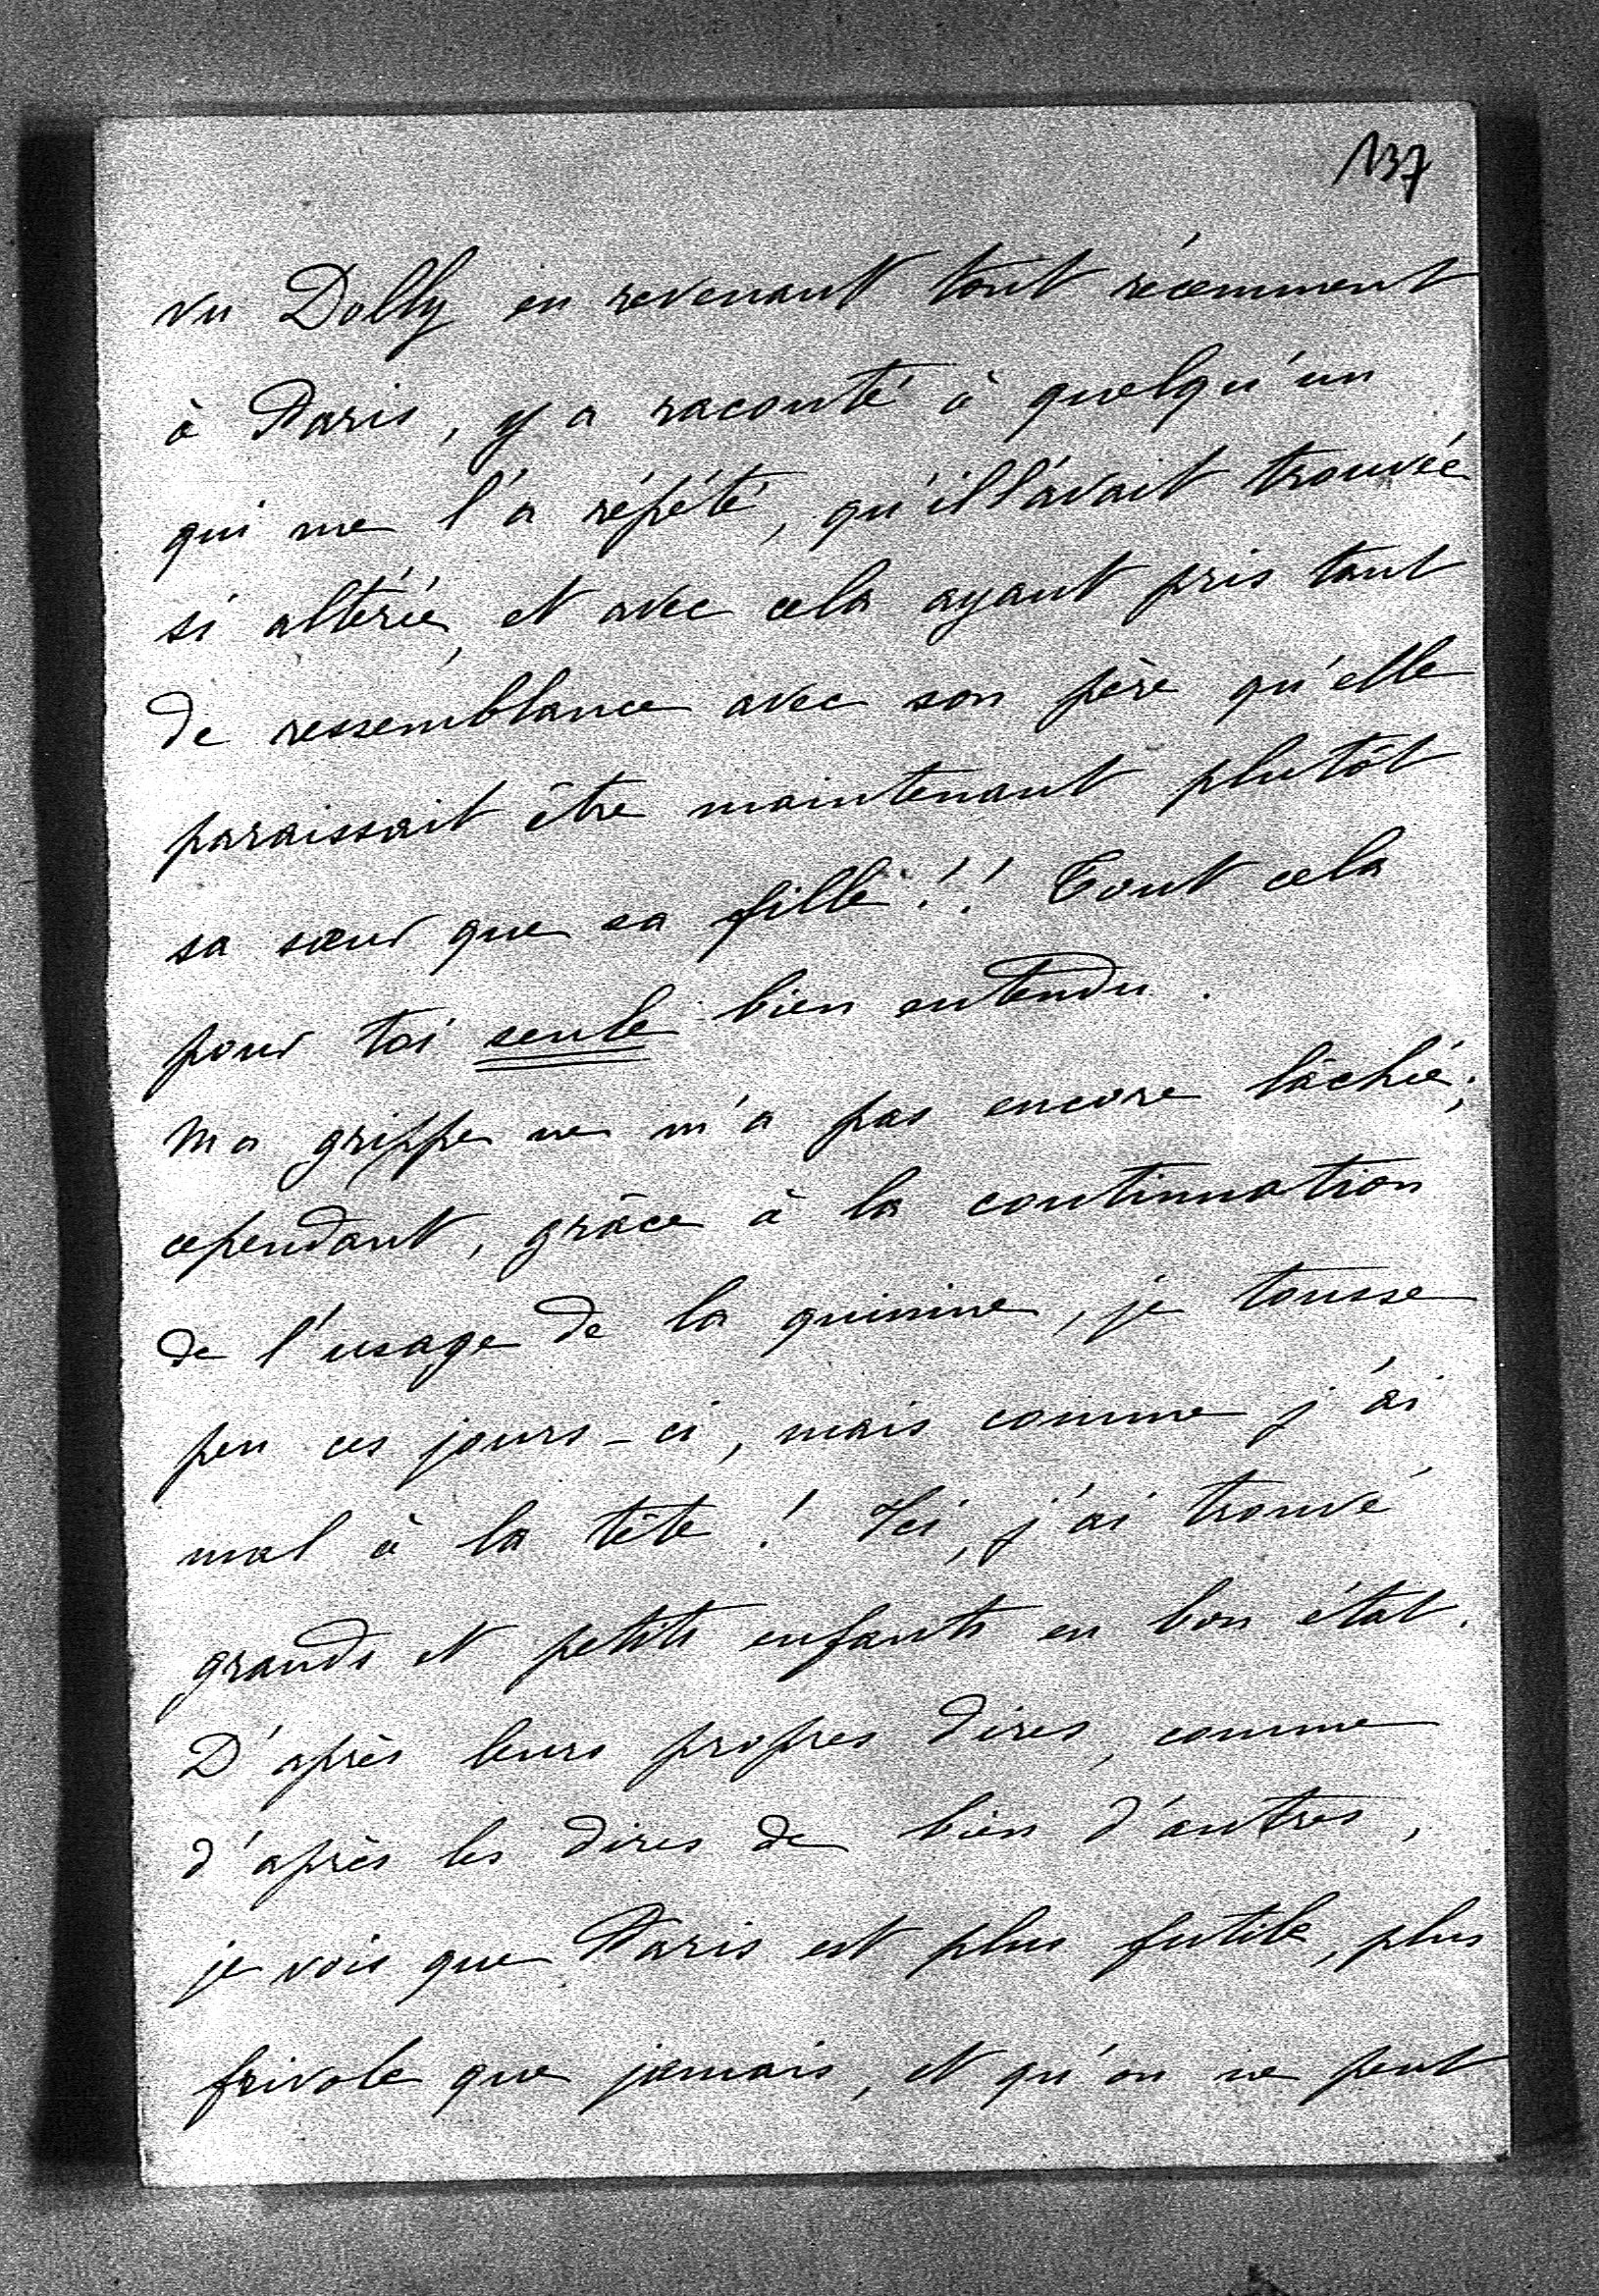 137
vu Dolly en revenant tout récemment
à Paris, y a raconté à quelqu'un
qui me l'a répété, qu'il l'avait trouvée
si altérée, et avec cela ayant pris tant
de ressemblance avec son père qu'elle
paraissait être maintenant plutôt
sa sœur que sa fille!! Tout cela
pour toi seule bien entendu.
Ma grippe ne m'a pas encore lâchée;
cependant, grâce à la continuation
de l'usage de la quinine, je tousse
peu ces jours-ci, mais comme j'ai
mal à la tête! Ici, j'ai trouvé
grands et petits enfants en bon état.
D'après leurs propres dires, comme
d'après les dires de bien d'autres,
je vois que Paris est plus futile, plus
frivole que jamais, et qu'on ne peut